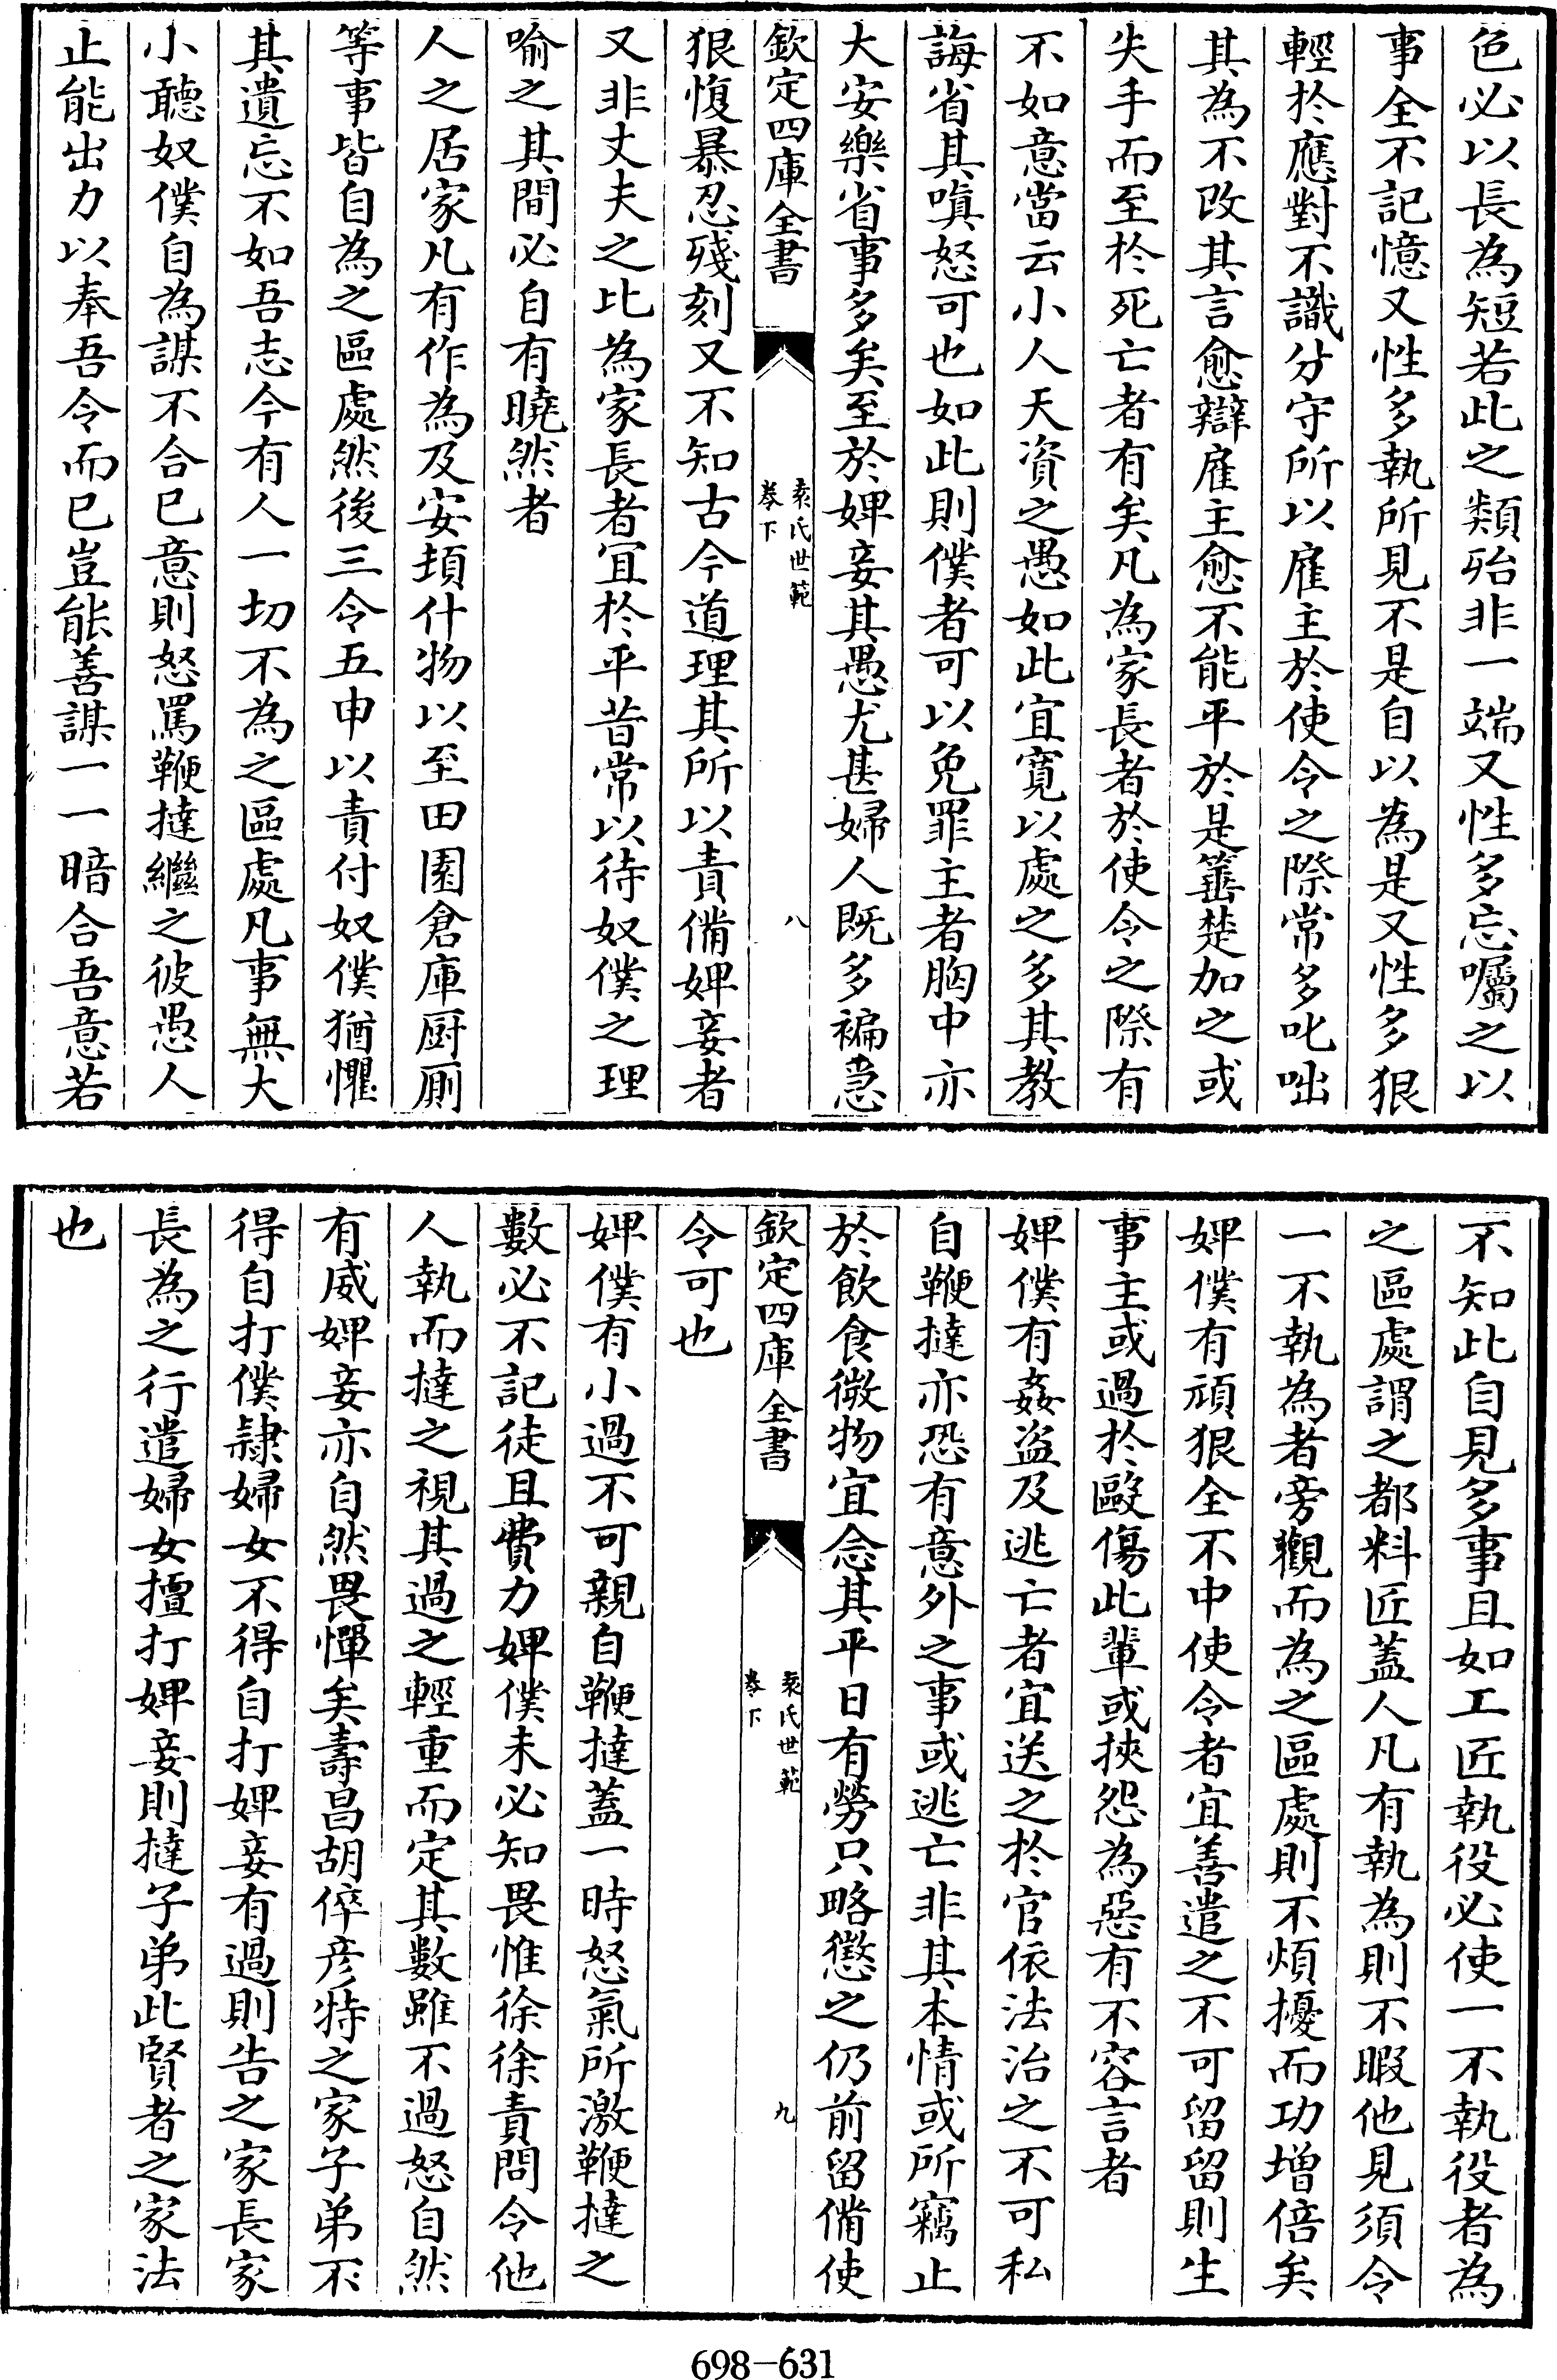 色必以長為短若此之類殆非一端又性多忘囑之以
事全不記憶又性多執所見不是自以為是又性多狠
輕於應對不識分守所以雇主於使令之際常多叱咄
其為不改其言愈辯雇主愈不能平於是箠楚加之或
失手而至於死亡者有矣凡為家長者於使令之際有
不如意當云小人天資之愚如此宜寛以處之多其教
誨省其嗔怒可也如此則僕者可以免罪主者胸中亦
大安樂省事多矣至於婢妾其愚尤甚婦人既多褊急
欽定四庫全書
袁氏世範
卷下
八
狠愎暴忍殘刻又不知古今道理其所以責備婢妾者
又非丈夫之比為家長者宜於平昔常以待奴僕之理
喻之其間必自有曉然者
人之居家凡有作為及安頓什物以至田園倉庫厨厠
等事皆自為之區處然後三令五申以責付奴僕猶懼
其遺忘不如吾志今有人一切不為之區處凡事無大
小聽奴僕自為謀不合已意則怒罵鞭撻繼之彼愚人
止能出力以奉吾令而已豈能善謀一一暗合吾意若
不知此自見多事且如工匠執役必使一不執役者為
之區處謂之都料匠蓋人凡有執為則不暇他見須令
一不執為者旁觀而為之區處則不煩擾而功增倍矣
婢僕有頑狠全不中使令者宜善遣之不可留留則生
事主或過於毆傷此輩或挾怨為惡有不容言者
婢僕有姦盜及逃亡者宜送之於官依法治之不可私
自鞭撻亦恐有意外之事或逃亡非其本情或所竊止
於飲食微物宜念其平日有勞只略懲之仍前留備使
欽定四庫全書
袁氏世範
卷下
九
令可也
婢僕有小過不可親自鞭撻蓋一時怒氣所激鞭撻之
數必不記徒且費力婢僕未必知畏惟徐徐責問令他
人執而撻之視其過之輕重而定其數雖不過怒自然
有威婢妾亦自然畏憚矣壽昌胡倅彦特之家子弟不
得自打僕隷婦女不得自打婢妾有過則告之家長家
長為之行遣婦女擅打婢妾則撻子弟此賢者之家法
也
698-631